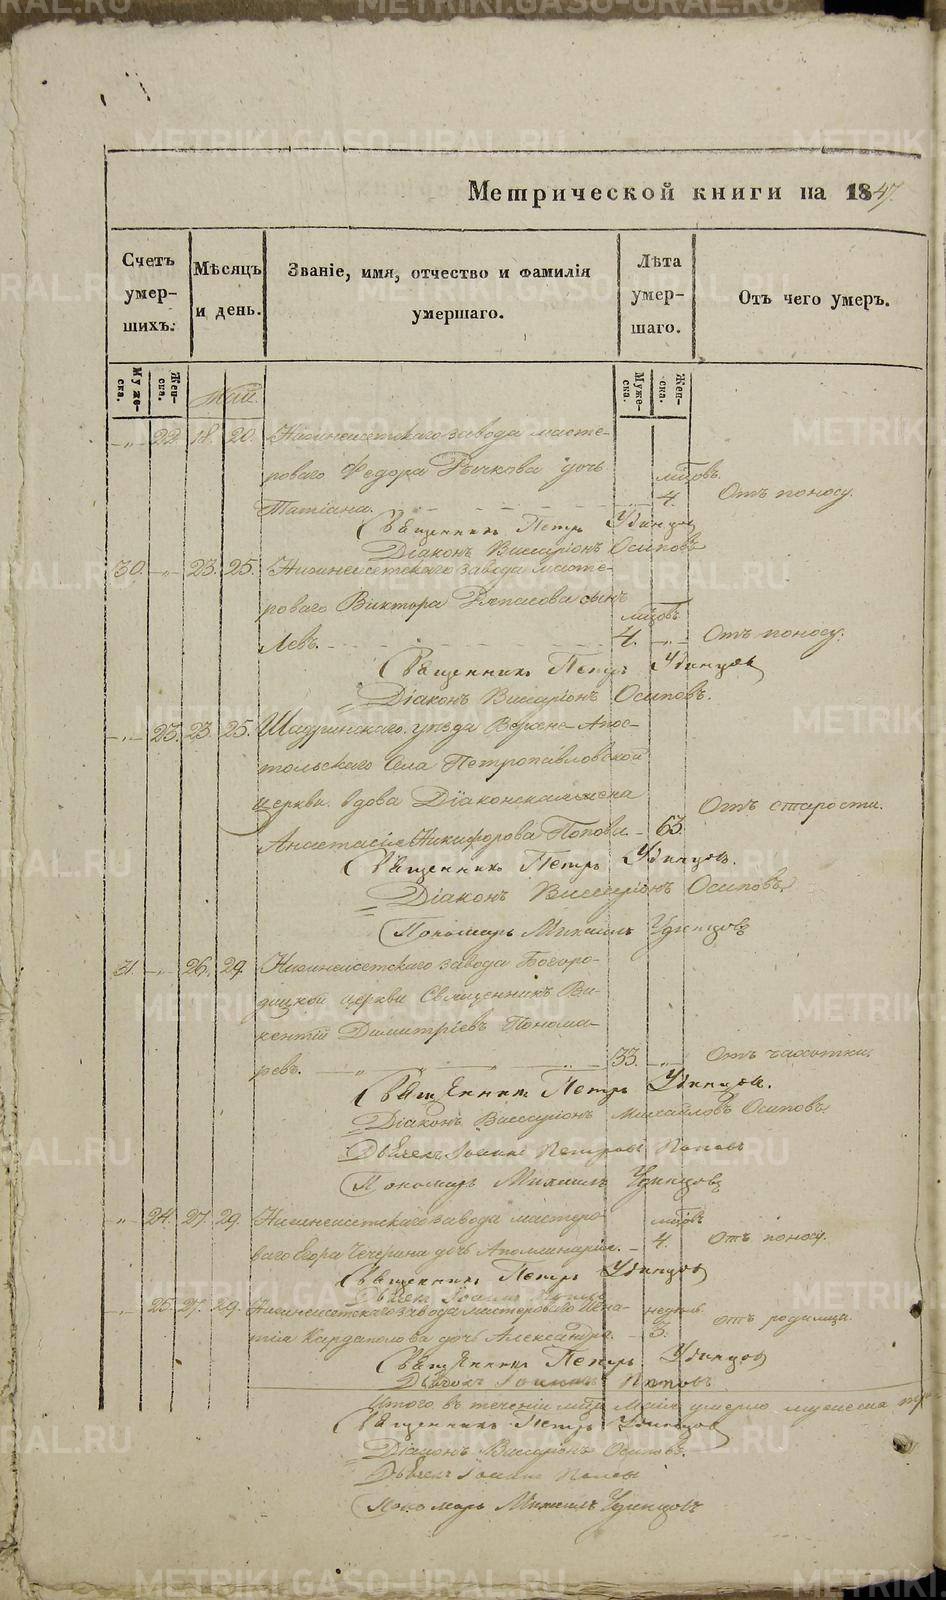 METRIKI.GASO-URAL.RU
Метрической книги на 1847.
Счетъ умер-шихъ.
Мѣсяцъ и день.
Званіе, имя, отчество и фамилія умершаго.
Лѣта умер-шаго.
Отъ чего умеръ.
Муже-ска.
Жен-ска.
Муже-ска.
Жен-ска.
Май
„ 22. 18. 20. Нижнеисетскаго завода масте-
роваго Федора Рычкова дочь мѣсцовъ.
Татіана. 4. Отъ поносу.
Священникъ Петръ Удинцов
Діаконъ Виссаріонъ Осиповъ
30. „ 23. 25. Нижнеисетскаго завода масте-
роваго Виктора сынъ мѣсцовъ
Левъ. 4. „ Отъ поносу.
Священникъ Петръ Удинцов
Діаконъ Виссаріонъ Осиповъ.
„ 23. 23. 25. Шадринскаго уѣзда Верхне-
тольскаго Села Петропавловской
церкви вдова Діаконская жена Отъ старости.
Анастасія Никифорова Попова 63.
Священникъ Петръ Удинцов.
Діаконъ Виссаріонъ Осиповъ,
Пономарь Михаилъ Удинцовъ
31. „ 26. 29 Нижнеисетскаго завода Богоро-
дицкой церкви Священникъ Ви-
кентій Димитріевъ Понома-
ревъ. 33. „ Отъ чахотки.
Священникъ Петръ Удинцов.
Діаконъ Виссаріонъ Михайловъ Осиповъ
Дьячекъ Іоаннъ Петровъ Поповъ
Пономарь Михаилъ Удинцовъ
„ 24. 27. 29. Нижнеисетскаго завода мастеро- мѣсцовъ
ваго Егора Чечерина дочь Апполинарія. 4. Отъ поносу.
Священникъ Петръ Удинцов
Дьячекъ Іоаннъ Поповъ
„ 25. 27. 29. Нижнеисетскаго завода мастероваго Игна- недѣль
тія Кардаполова дочь Александра. 3. отъ родимца.
Священникъ Петръ Удинцов
Дьячокъ Іоаннъ Поповъ
Итого въ теченіи мѣсца Маія умерло мужеска
Священникъ Петръ Удинцов
Діаконъ Виссаріонъ Осиповъ.
Дьячекъ Іоаннъ Поповъ
Пономарь Михаилъ Удинцовъ